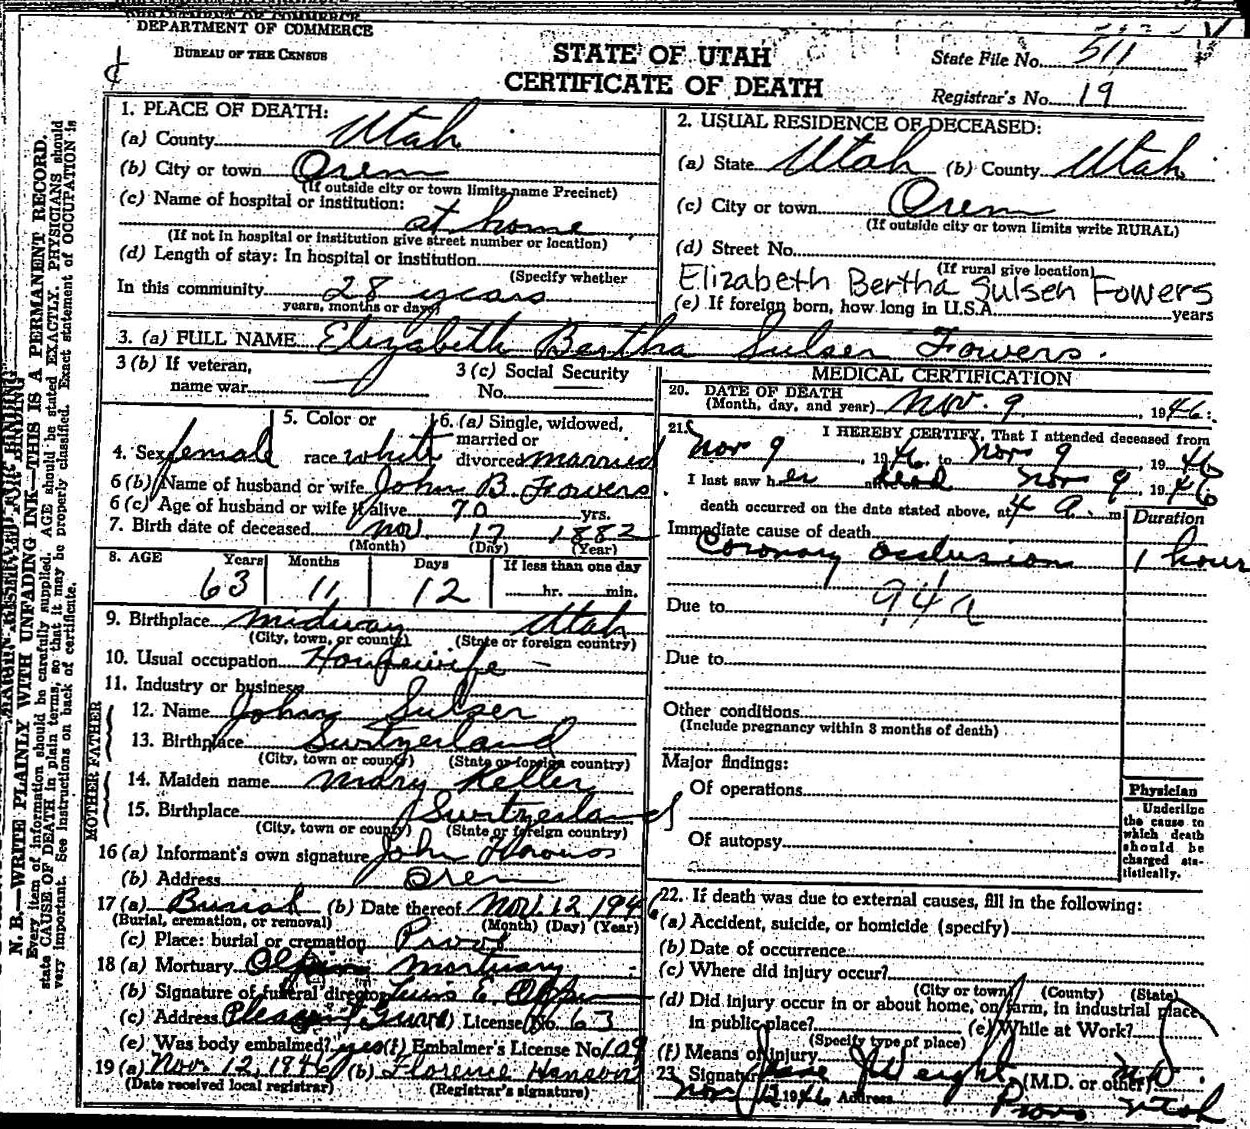 DEPARTMENT OF COMMERCE
BUREAU OF THE CENSUS
STATE OF UTAH
CERTIFICATE OF DEATH
State File No. 511
Registrar's No. 19
N. B.—WRITE PLAINLY WITH UNFADING INK—THIS IS A PERMANENT RECORD.
Every item of information should be carefully supplied. AGE should be stated EXACTLY. PHYSICIANS should
state CAUSE OF DEATH in plain terms, so that it may be properly classified. Exact statement of OCCUPATION is
very important. See instructions on back of certificate.
1. PLACE OF DEATH:
(a) County Utah
(b) City or town Orem
(If outside city or town limits name Precinct)
(c) Name of hospital or institution:
at home
(If not in hospital or institution give street number or location)
(d) Length of stay: In hospital or institution
(Specify whether
In this community 28 years
years, months or days)
2. USUAL RESIDENCE OF DECEASED:
(a) State Utah (b) County Utah
(c) City or town Orem
(If outside city or town limits write RURAL)
(d) Street No.
(If rural give location)
Elizabeth Bertha Sulsen Fowers
(e) If foreign born, how long in U.S.A. years
3. (a) FULL NAME Elizabeth Bertha Sulser Fowers.
3 (b) If veteran,
name war
3 (c) Social Security
No.
4. Sex female
5. Color or
race white
6. (a) Single, widowed,
married or
divorced married
6 (b) Name of husband or wife John B. Fowers
6 (c) Age of husband or wife if alive 70 yrs.
7. Birth date of deceased Nov. 17 1882
(Month) (Day) (Year)
8. AGE Years Months Days If less than one day
63 11 12 hr. min.
9. Birthplace Midway Utah
(City, town, or county) (State or foreign country)
10. Usual occupation Housewife
11. Industry or business
FATHER
12. Name John Sulser
13. Birthplace Switzerland
(City, town or county) (State or foreign country)
MOTHER
14. Maiden name Mary Keller
15. Birthplace Switzerland
(City, town or county) (State or foreign country)
16 (a) Informant's own signature John Flowers
(b) Address Orem
17 (a) Burial (b) Date thereof Nov. 12, 1946
(Burial, cremation, or removal) (Month) (Day) (Year)
(c) Place: burial or cremation Provo
18 (a) Mortuary Olpin Mortuary
(b) Signature of funeral director E. Olpin
(c) Address Pleasant Grove (d) License No. 63
(e) Was body embalmed? yes (f) Embalmer's License No. 109
19 (a) Nov. 12, 1946 (b) Florence Hanson
(Date received local registrar) (Registrar's signature)
MEDICAL CERTIFICATION
20. DATE OF DEATH
(Month, day, and year) Nov. 9, 1946.
21. I HEREBY CERTIFY, That I attended deceased from
Nov 9, 1946 to Nov 9, 1946
I last saw her dead Nov 9, 1946
death occurred on the date stated above, at 4 a. m
Duration
Immediate cause of death
Coronary occlusion 1 hour
94a
Due to
Due to
Other conditions
(Include pregnancy within 3 months of death)
Major findings:
Of operations
Of autopsy
Physician
Underline
the cause to
which death
should be
charged sta-
tistically.
22. If death was due to external causes, fill in the following:
(a) Accident, suicide, or homicide (specify)
(b) Date of occurrence
(c) Where did injury occur?
(City or town) (County) (State)
(d) Did injury occur in or about home, on farm, in industrial place,
in public place? (e) While at Work?
(Specify type of place)
(f) Means of injury
23. Signature Weight (M.D. or other) M.D.
Nov 12 1946 Address Provo Utah